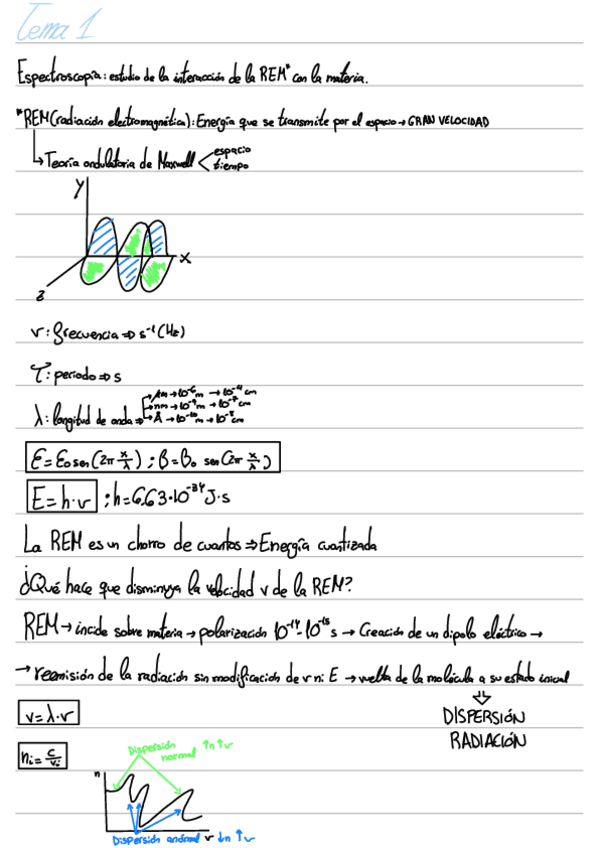 Tema 1
Espectroscopía: estudio de la interacción de la REM* con la materia.
*REM(radiación electromagnética): Energía que se transmite por el espacio → GRAN VELOCIDAD
↳ Teoría ondulatoria de Maxwell < espacio
tiempo
y
x
z
ν: frecuencia ⇒ s⁻¹ (Hz)
τ: periodo ⇒ s
μm → 10⁻⁶ m → 10⁻⁴ cm
nm → 10⁻⁹ m → 10⁻⁷ cm
λ: longitud de onda ⇒ Å → 10⁻¹⁰ m → 10⁻⁸ cm
E = E₀ sen (2π x/λ) ; B = B₀ sen (2π x/λ)
E = h·ν ; h = 6,63·10⁻³⁴ J·s
La REM es un chorro de cuantos ⇒ Energía cuantizada
¿Qué hace que disminuya la velocidad v de la REM?
REM → incide sobre materia → polarización 10⁻¹⁴-10⁻¹⁵ s → Creación de un dipolo eléctrico →
→ reemisión de la radiación sin modificación de ν ni E → vuelta de la molécula a su estado inicial
⇓
DISPERSIÓN
RADIACIÓN
v = λ·ν
nᵢ = c/vᵢ
Dispersión normal ↑n ↑ν
n
Dispersión anómal ν ↓n ↑ν